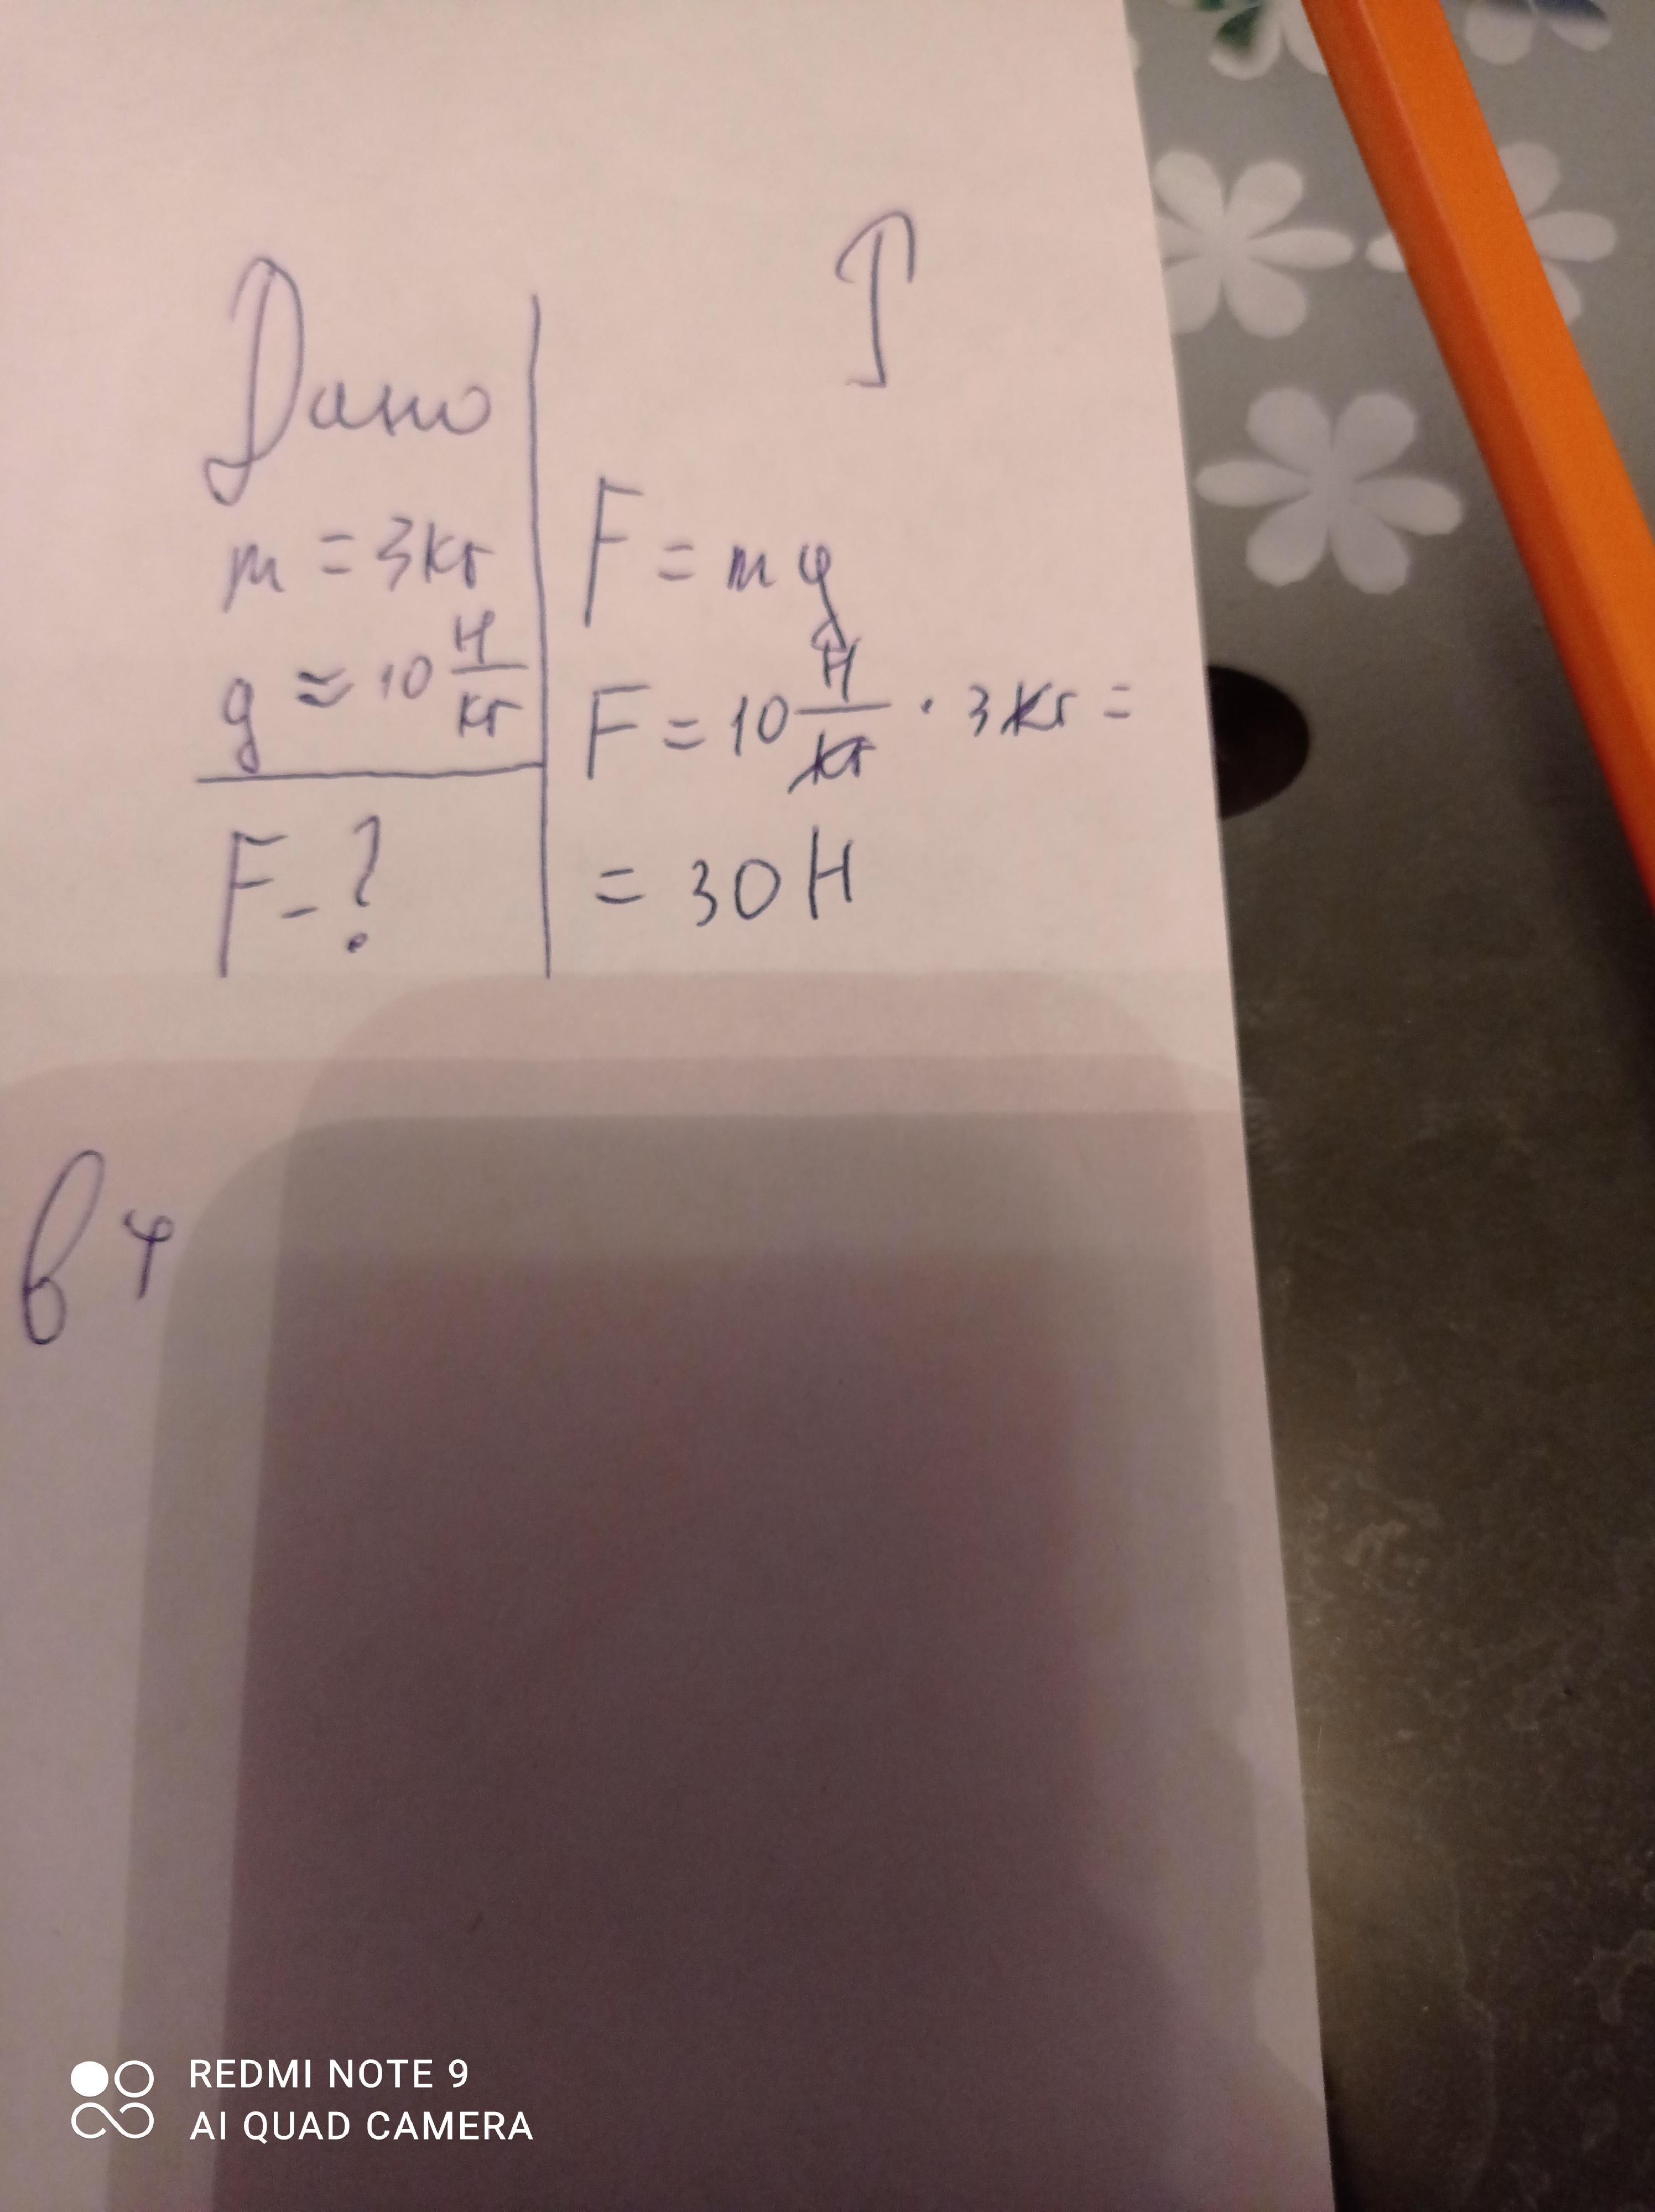 Дано
m = 3кг
g ≈ 10 Н/кг
F - ?
F = mg
F = 10 Н/кг · 3кг =
= 30 Н
REDMI NOTE 9
AI QUAD CAMERA